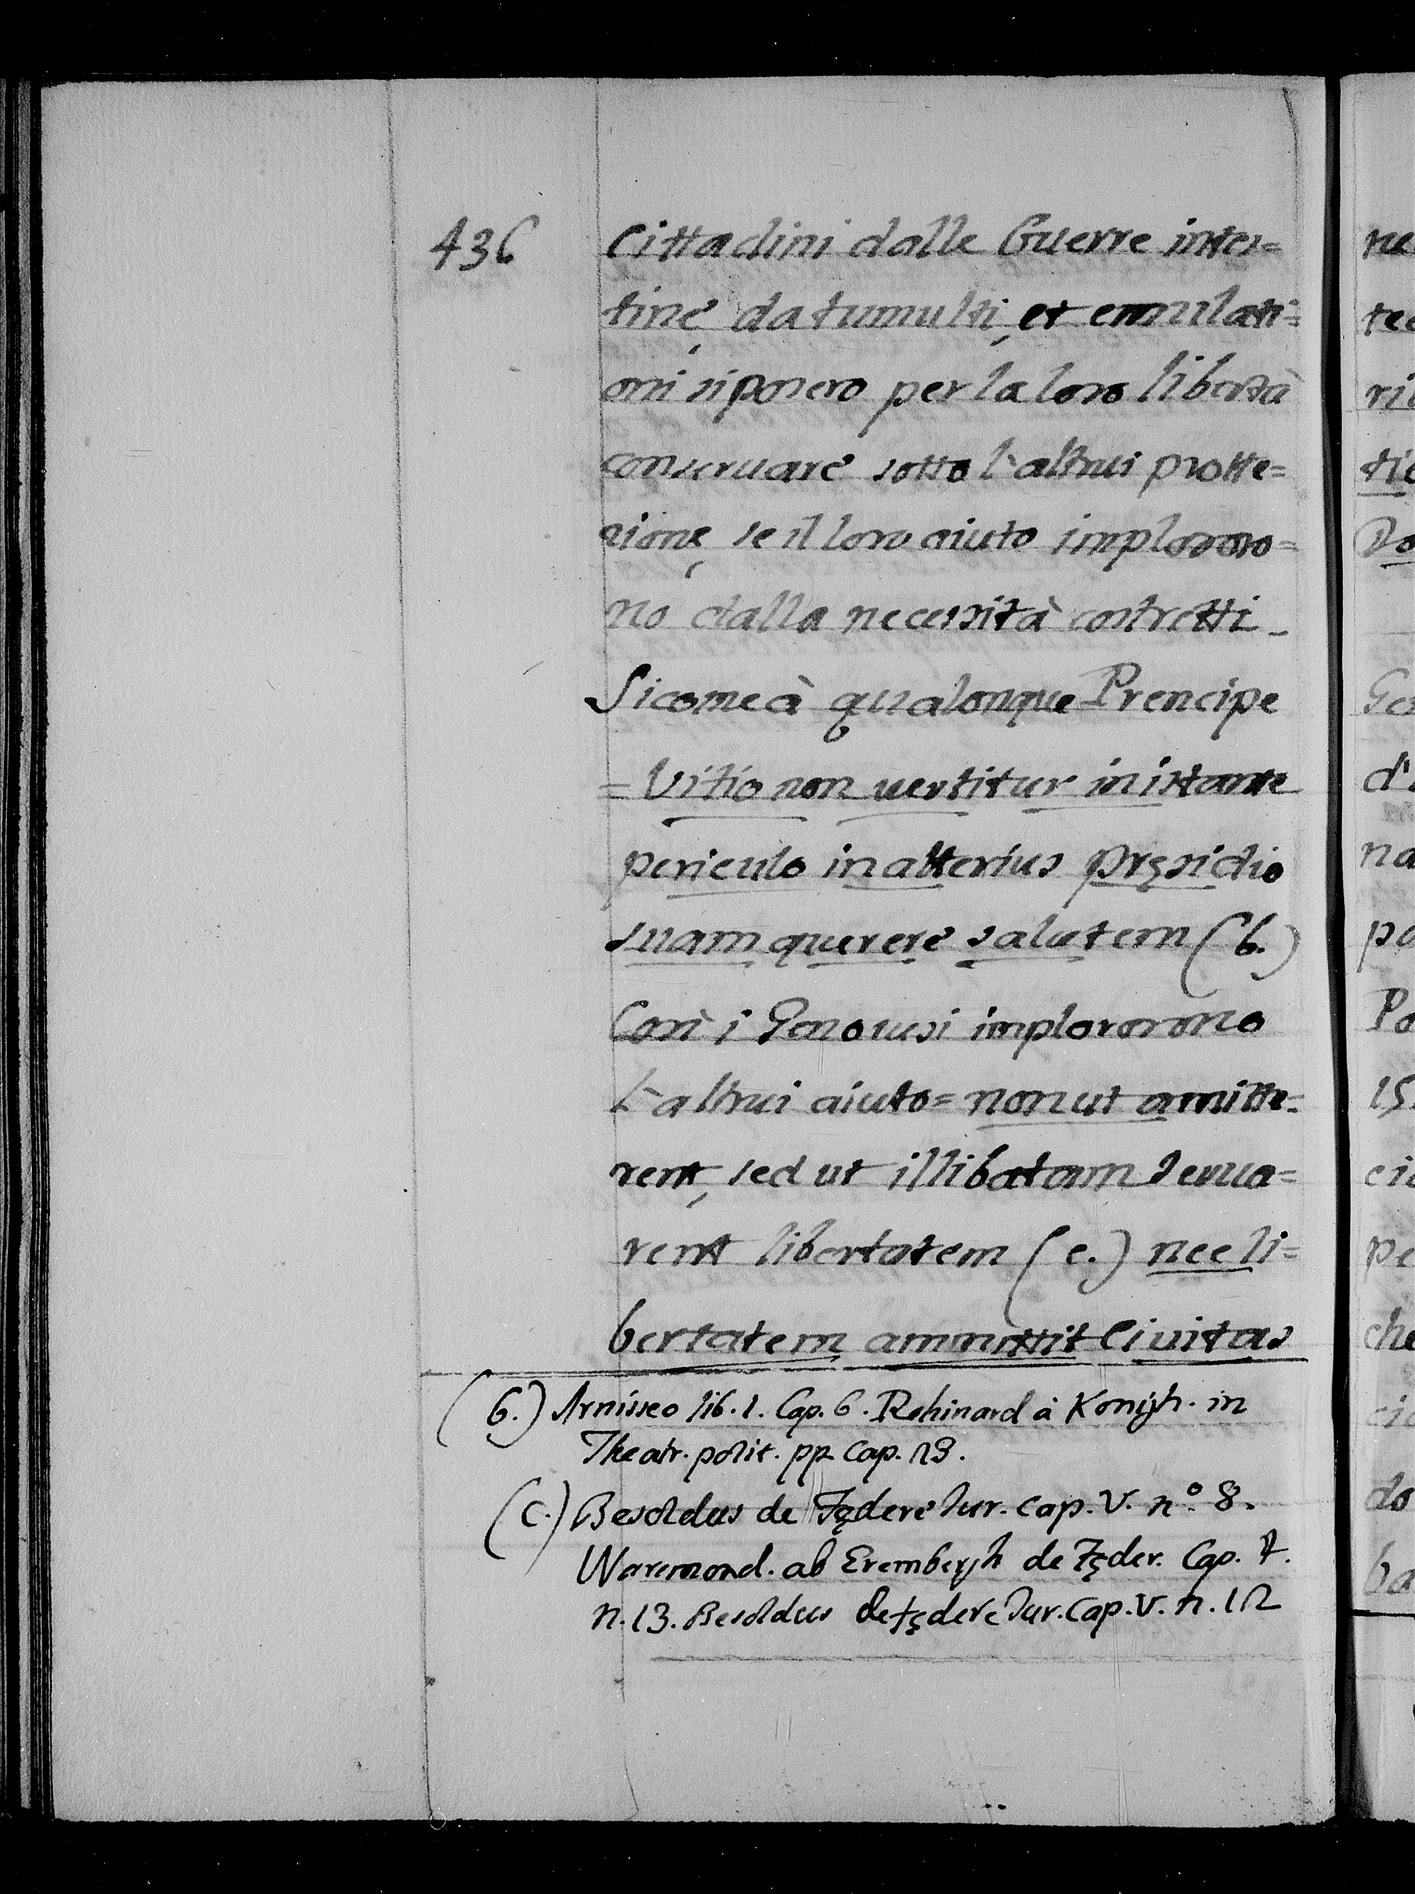 436
Cittadini dalle Guerre intes=
tine, da tumulti, et emulati=
oni si posero per la loro libertà
conseruare sotto l'altrui protte=
zione, se il loro aiuto imploraro=
no dalla necessità costretti_
Sicome à qualonque Prencipe
= Vitio non uertitur in istante
periculo in alterius pręsidio
suam querere salutem (b.)
Così i Genouesi implorarono
l'altrui aiuto = non ut amitte=
rent, sed ut illibatam serua=
rent libertatem (c.) nec li=
bertatem ammittit Ciuitas
(b.) Arnisseo lib. 1. Cap. 6. Rehinard à Konigh. in
Theatr. polit. pp. cap. 13.
(c.) Besoldus de Fędere Iur. cap. V. nº. 8.
Waremond. ab Erembergh de Fęder. Cap. 7.
n. 13. Besoldus de fędere Iur. cap. V. n. 12